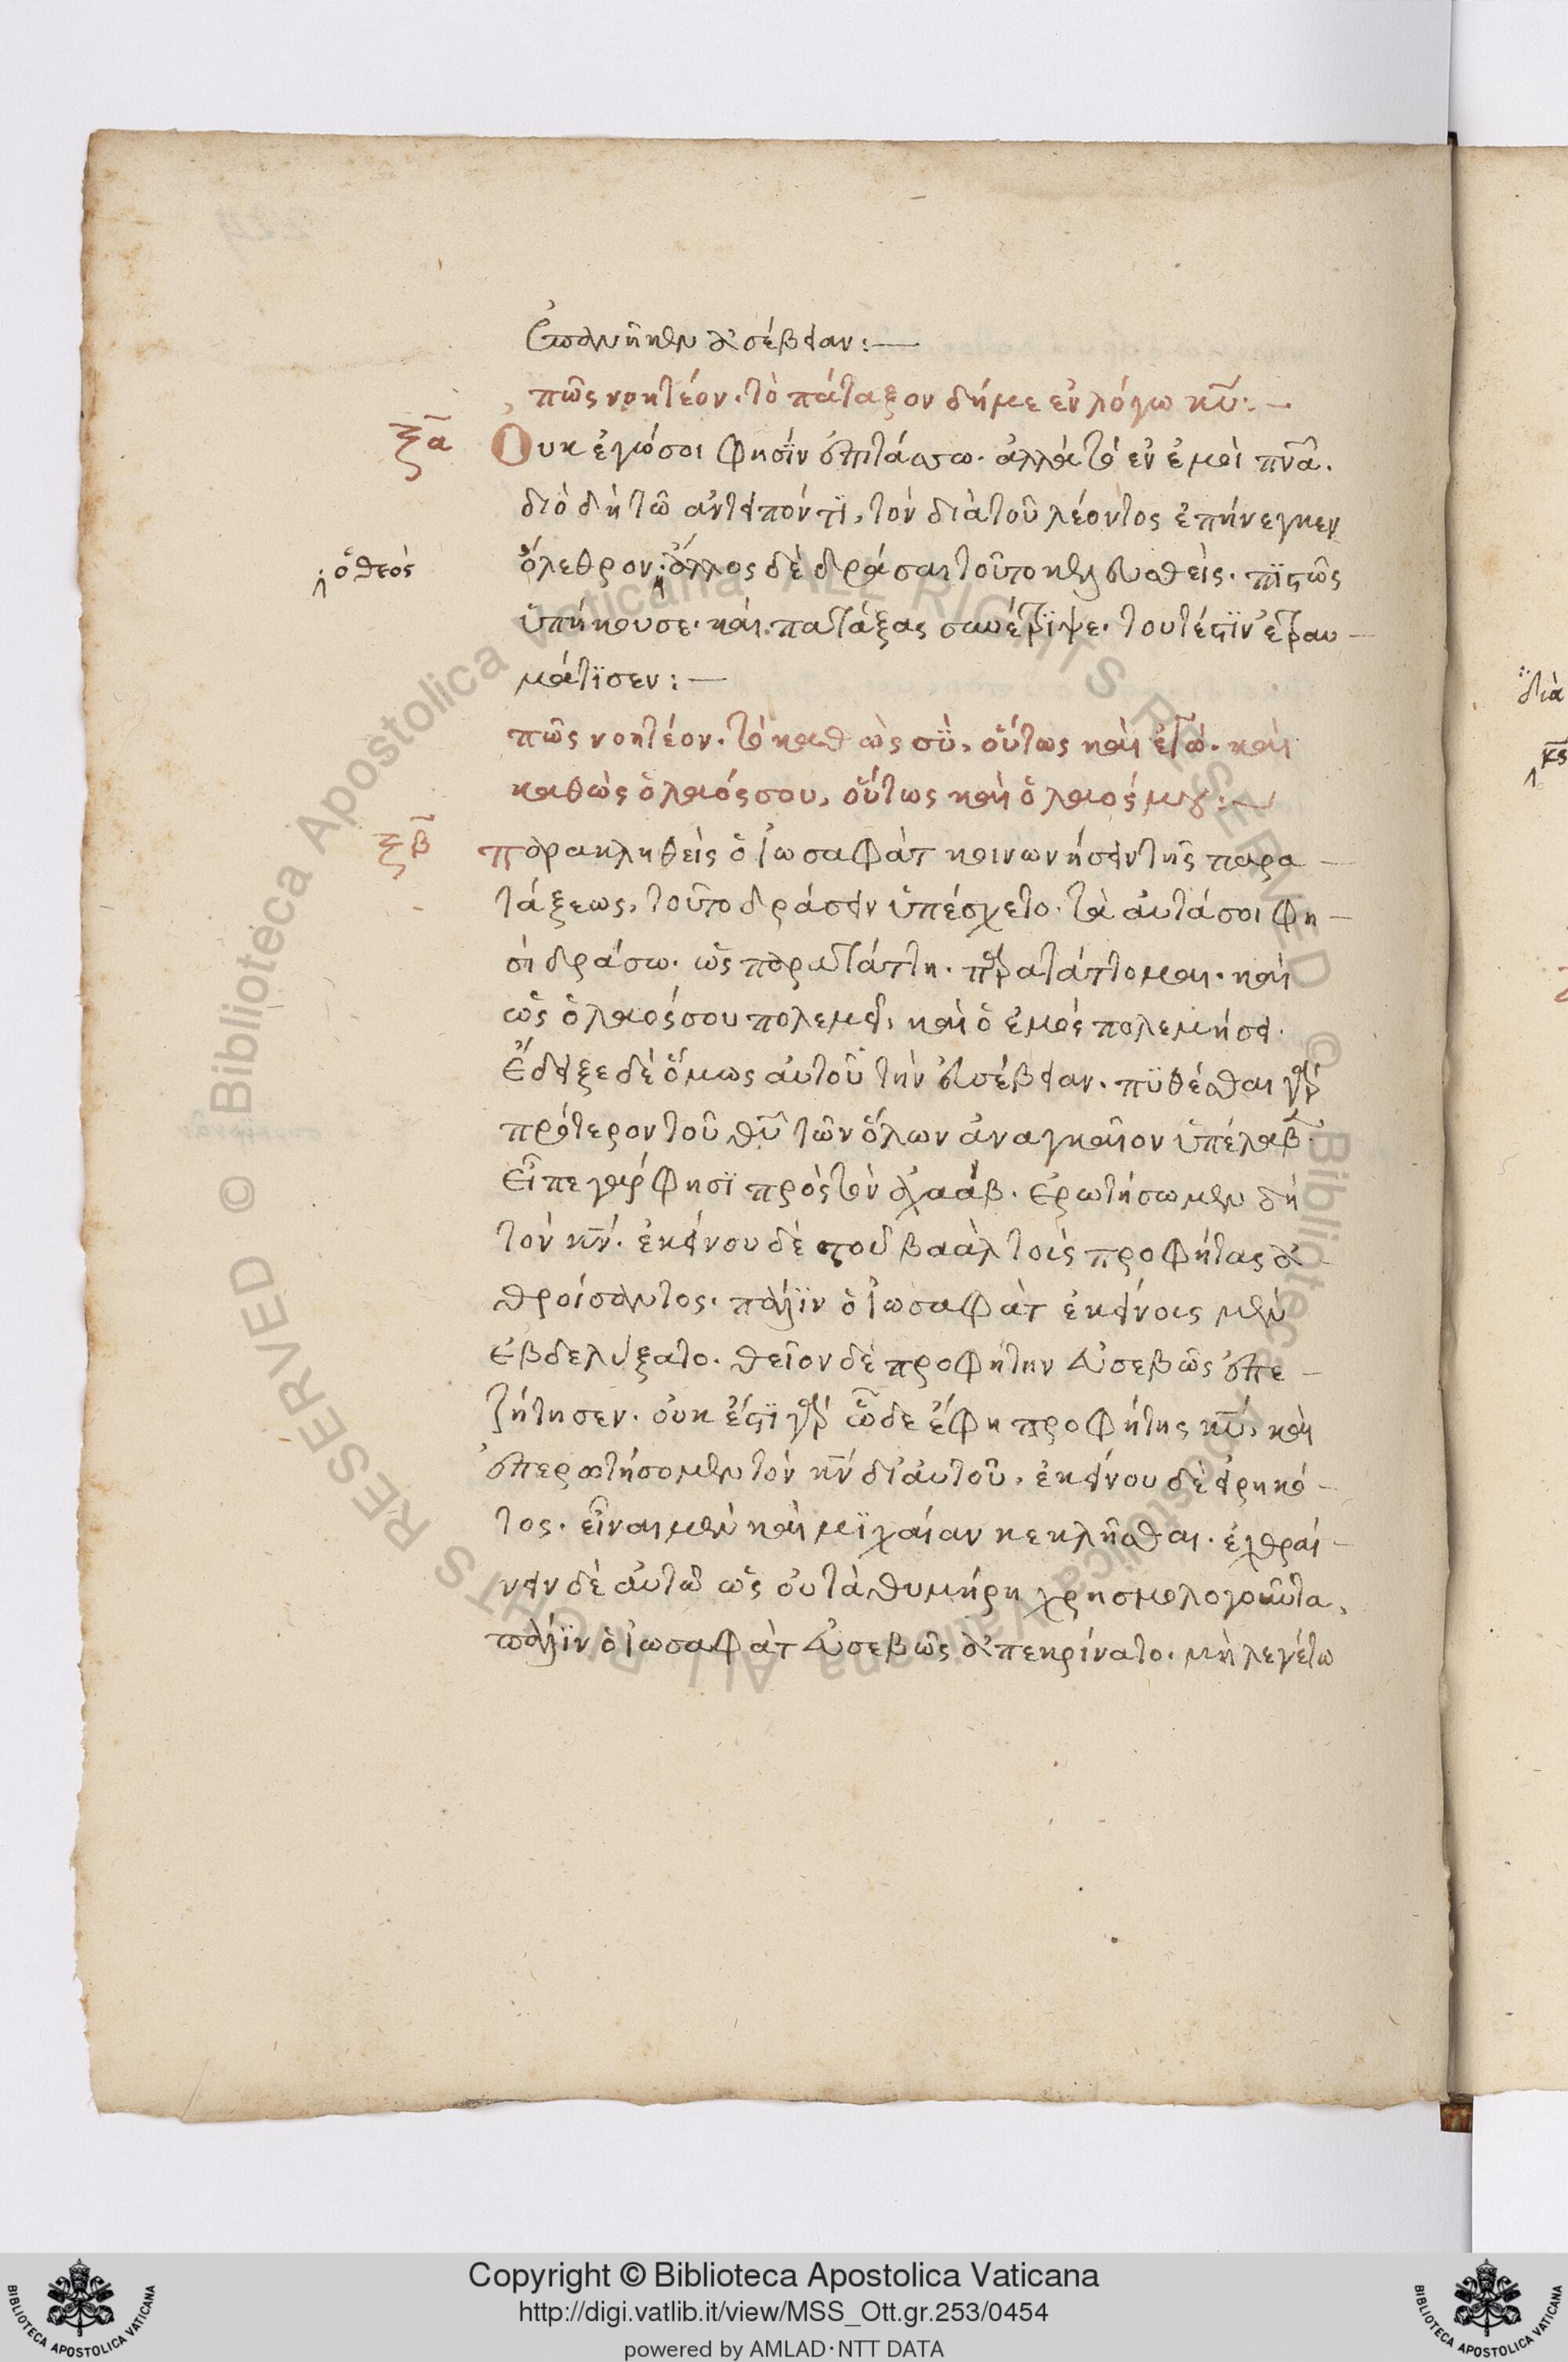 ἐπανῆκεν ἀσέβειαν:—
πῶς νοητέον. τὸ πάταξον δή με ἐν λόγω κ̅υ̅:—
ξα Οὐκ ἐγώ σοι φησΐν ἐπιτάσσω. ἀλλὰ τὸ ἐν ἐμοὶ π̅ν̅α̅.
διὸ δὴ τῶ ἀντειπόντϊ, τὸν διὰ τοῦ λέοντος ἐπήνεγκεν
ὁ θεός
ὄλεθρον· ἄλλος δὲ δρᾶσαι τοῦτο κελευσθεὶς. πϊστῶς
ὑπήκουσε. καὶ πατάξας συνέτρϊψε. τουτέστϊν ἐτραυ—
μάτϊσεν:—
πῶς νοητέον. τὸ καθὼς σῢ, οὕτως καὶ ἐγώ. καὶ
καθὼς ὁ λαός σου, οὕτως καὶ ὁ λαός μου:~
ξβ παρακληθεὶς ὁ ἰωσαφὰτ κοινωνήσειν τῆς παρα—
τάξεως, τοῦτο δράσειν ὑπέσχετο. τὰ αὐτά σοι φη—
σὶ δράσω. ὡς παρατάττη. παρατάττομαι. καὶ
ὡς ὁ λαός σου πολεμεῖ, καὶ ὁ ἐμὸς πολεμήσει.
ἔδειξε δὲ ὅμως αὐτοῦ τὴν εὐσέβειαν. πϋθέσθαι γὰρ
πρότερον τοῦ θ̅υ̅ τῶν ὅλων ἀναγκαῖον ὑπέλαβ
εἶπε γάρ φησϊ πρὸς τὸν ἀχαάβ. ἐρωτήσωμεν δὴ
τὸν κ̅ν̅. ἐκείνου δὲ τοῦ βαὰλ τοὺς προφήτας ἀ
θροίσαντος. πάλϊν ὁ ἰωσαφὰτ ἐκείνους μὲν
ἐβδελύξατο. θεῖον δὲ προφήτην εὐσεβῶς ἐπε—
ζήτησεν. οὐκ ἔστϊ γὰρ ὧδε ἔφη προφήτης κ̅υ̅, καὶ
ἐπερωτήσομεν τὸν κ̅ν̅ δι' αὐτοῦ. ἐκείνου δὲ εἰρηκό—
τος. εἶναι μὲν καὶ μϊχαίαν κεκλῆσθαι. ἐχθραί—
νειν δὲ αὐτῶ ὡς οὐ τὰ θυμήρη χρησμολογοῦντα,
πάλϊν ὁ ἰωσαφὰτ εὐσεβῶς ἀπεκρίνατο. μὴ λεγέτω
διὰ
κ̅ς̅
Copyright © Biblioteca Apostolica Vaticana
http://digi.vatlib.it/view/MSS_Ott.gr.253/0454
powered by AMLAD·NTT DATA
BIBLIOTECA APOSTOLICA VATICANA
BIBLIOTECA APOSTOLICA VATICANA
© Biblioteca Apostolica Vaticana ALL RIGHTS RESERVED © Biblioteca Apostolica Vaticana ALL RIGHTS RESERVED